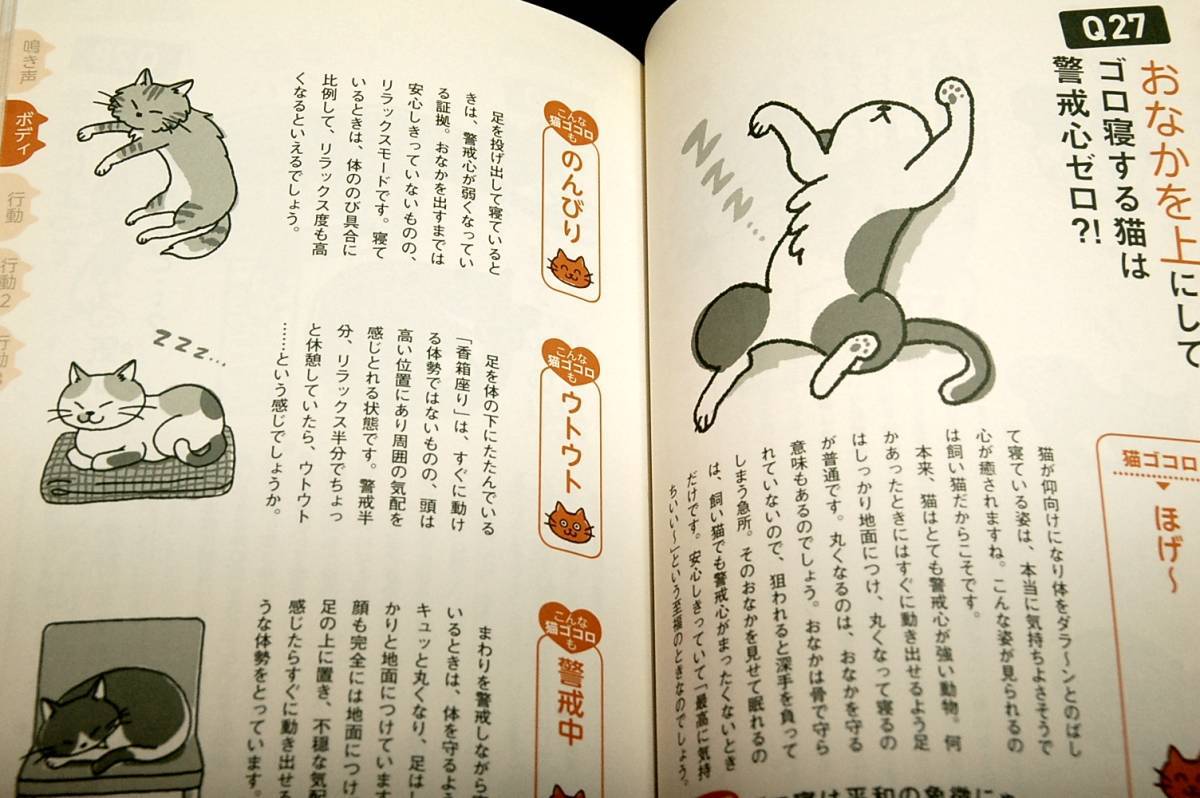 Q27
おなかを上にして
ゴロ寝する猫は
警戒心ゼロ?!
ZZZZZ…
猫ゴコロ
ほげ〜
猫が仰向けになり体をダラ〜ンとのばし
て寝ている姿は、本当に気持ちよさそうで
心が癒されますね。こんな姿が見られるの
は飼い猫だからこそです。
本来、猫はとても警戒心が強い動物。何
かあったときにはすぐに動き出せるよう足
はしっかり地面につけ、丸くなって寝るの
が普通です。丸くなるのは、おなかを守る
意味もあるのでしょう。おなかは骨で守ら
れていないので、狙われると深手を負って
しまう急所。そのおなかを見せて眠れるの
は、飼い猫でも警戒心がまったくないとき
だけです。安心しきっていて「最高に気持
ちいい〜」という至福のときなのでしょう。
寝は平和の象徴
こんな
猫ゴコロ
も
のんびり
足を投げ出して寝ていると
きは、警戒心が弱くなってい
る証拠。おなかを出すまでは
安心しきっていないものの、
リラックスモードです。寝て
いるときは、体ののび具合に
比例して、リラックス度も高
くなるといえるでしょう。
こんな
猫ゴコロ
も
ウトウト
足を体の下にたたんでいる
「香箱座り」は、すぐに動け
る体勢ではないものの、頭は
高い位置にあり周囲の気配を
感じとれる状態です。警戒半
分、リラックス半分でちょっ
と休憩していたら、ウトウト
……という感じでしょうか。
ZZZ…
こんな
猫ゴコロ
も
警戒中
まわりを警戒しながら
いるときは、体を守るよう
キュッと丸くなり、足はし
かりと地面につけています
顔も完全には地面につけ
足の上に置き、不穏な気配
感じたらすぐに動き出せる
うな体勢をとっています。
鳴き声
ボディ
行動
行動2